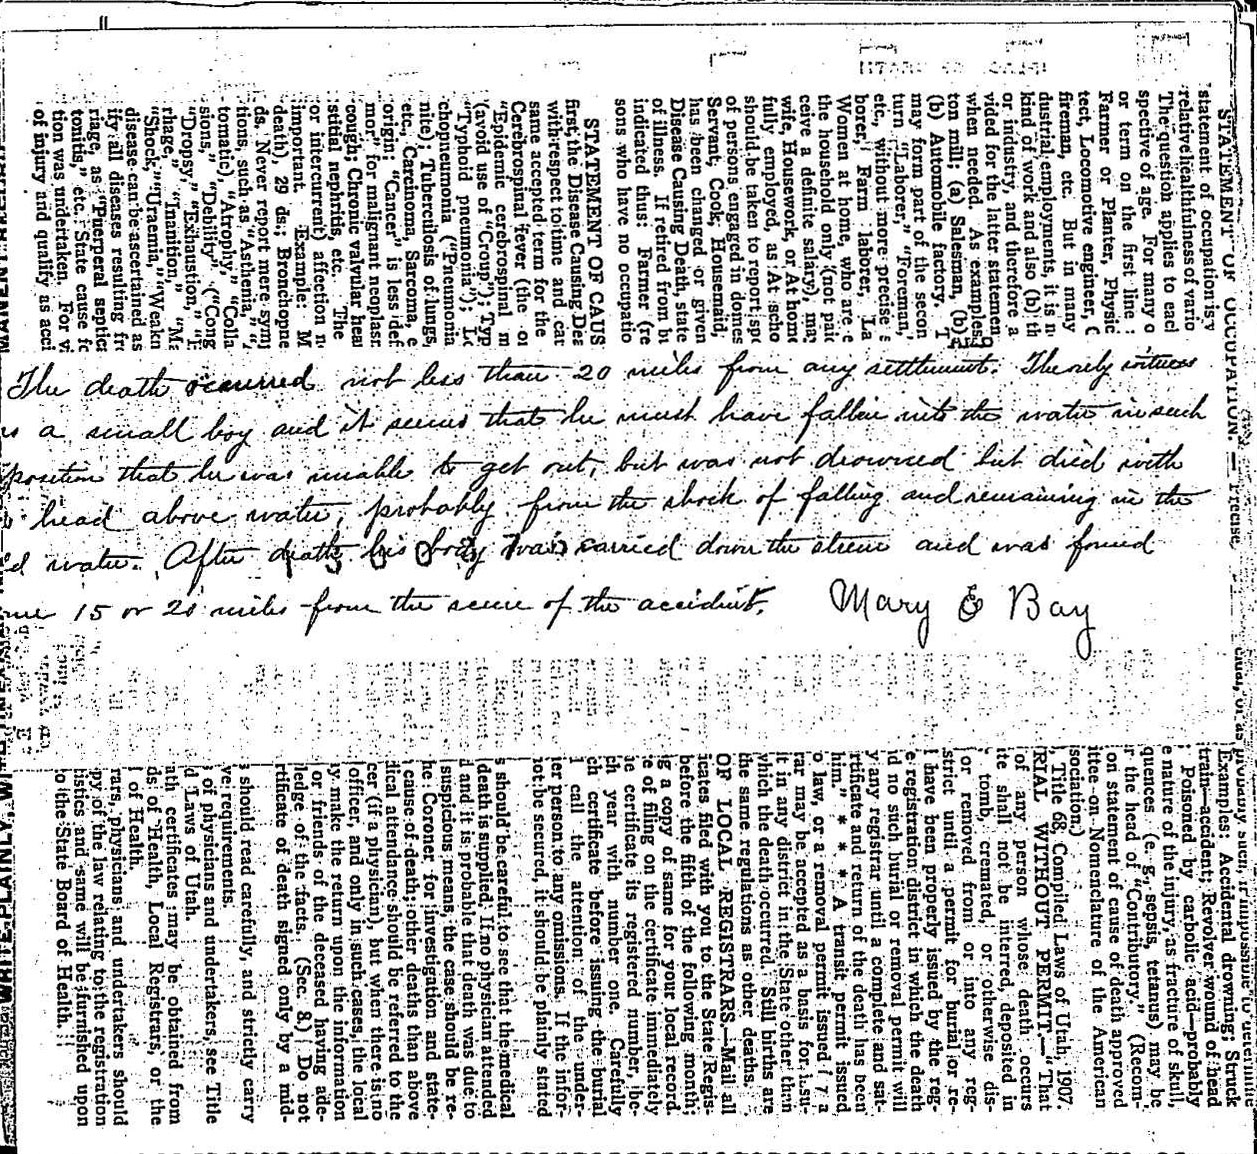 STATEMENT OF OCCUPATION.—Precise
statement of occupation is
relative healthfulness of vario
The question applies to each
spective of age. For many o
or term on the first line
Farmer or Planter, Physic
tect, Locomotive engineer, C
fireman, etc. But in many
dustrial employments, it is n
kind of work and also (b) th
or industry, and therefore a
vided for the latter statemen
when needed. As examples:
ton mill; (a) Salesman, (b)
(b) Automobile factory. T
may form part of the secon
turn "Laborer," "Foreman,"
etc., without more precise s
borer, Farm laborer, La
Women at home, who are e
the household only (not paid
ceive a definite salary), ma
wife, Housework, or At home
fully employed, as At schoo
should be taken to report spe
of persons engaged in domes
Servant, Cook, Housemaid,
has been changed or given
Disease Causing Death, state
of illness. If retired from bu
indicated thus: Farmer (re
sons who have no occupatio
STATEMENT OF CAUS
first, the Disease Causing Dea
with respect to time and cau
same accepted term for the
Cerebrospinal fever (the on
"Epidemic cerebrospinal m
(avoid use of "Croup"); Typ
"Typhoid pneumonia"); Lo
chopneumonia ("Pneumonia
nite); Tuberculosis of lungs,
etc., Carcinoma, Sarcoma, e
origin; "Cancer" is less def
mor" for malignant neoplasm
cough; Chronic valvular hea
stitial nephritis, etc. The
or intercurrent) affection n
important. Example: M
death), 29 ds.; Bronchopne
ds. Never report mere symp
tions, such as "Asthenia,"
tomatic), "Atrophy," "Colla
sions," "Debility" ("Cong
"Dropsy," "Exhaustion," "H
rhage," "Inanition," "Ma
"Shock," "Uraemia," "Weakn
disease can be ascertained as
ify all diseases resulting fr
riage, as "Puerperal septice
tonitis," etc. State cause fo
tion was undertaken. For vi
of injury and qualify as acci
The death occurred not less than 20 miles from any settlement. The only witness
s a small boy and it seems that he must have fallen into the water in such
position that he was unable to get out, but was not drowned but died with
head above water, probably from the shock of falling and remaining in the
ld water. After death his body was carried down the stream and was found
me 15 or 20 miles from the scene of the accident.
Mary E Bay
Examples: Accidental drowning; Struck
train—accident; Revolver wound of head
Poisoned by carbolic acid—probably
e nature of the injury, as fracture of skull,
quences (e. g., sepsis, tetanus) may be
r the head of "Contributory." (Recom-
on statement of cause of death approved
ittee on Nomenclature of the American
sociation.)
, Title 68, Compiled Laws of Utah, 1907.
RIAL WITHOUT PERMIT.—"That
of any person whose death occurs
te shall not be interred, deposited in
tomb, cremated, or otherwise dis-
or removed from or into any reg-
strict until a permit for burial or re-
l have been properly issued by the reg-
e registration district in which the death
d no such burial or removal permit will
y any registrar until a complete and sat-
rtificate and return of the death has been
him." * * * A transit permit issued
o law, or a removal permit issued by a
rar may be accepted as a basis for issu-
it in any district in the State other than
which the death occurred. Still births are
the same regulations as other deaths.
OF LOCAL REGISTRARS.—Mail all
icates filed with you to the State Regis-
before the fifth of the following month;
g a copy of same for your local record.
e of filing on the certificate immediately
e certificate its registered number, be-
ch year with number one. Carefully
ch certificate before issuing the burial
l call the attention of the under-
er person to any omissions. If the infor-
not be secured, it should be plainly stated
s should be careful to see that the medical
death is supplied. If no physician attended
d and it is probable that death was due to
suspicious means, the case should be re-
he Coroner for investigation and state-
cause of death; other deaths than above
dical attendance should be referred to the
cer (if a physician), but when there is no
officer, and only in such cases, the local
y make the return upon the information
or friends of the deceased having ade-
ledge of the facts. (Sec. 8.) Do not
rtificate of death signed only by a mid-
s should read carefully, and strictly carry
ve requirements.
of physicians and undertakers, see Title
d Laws of Utah.
ath certificates may be obtained from
ds of Health, Local Registrars, or the
of Health.
rars, physicians and undertakers should
py of the law relating to the registration
tistics and same will be furnished upon
to the State Board of Health.
WRITE PLAINLY, WITH